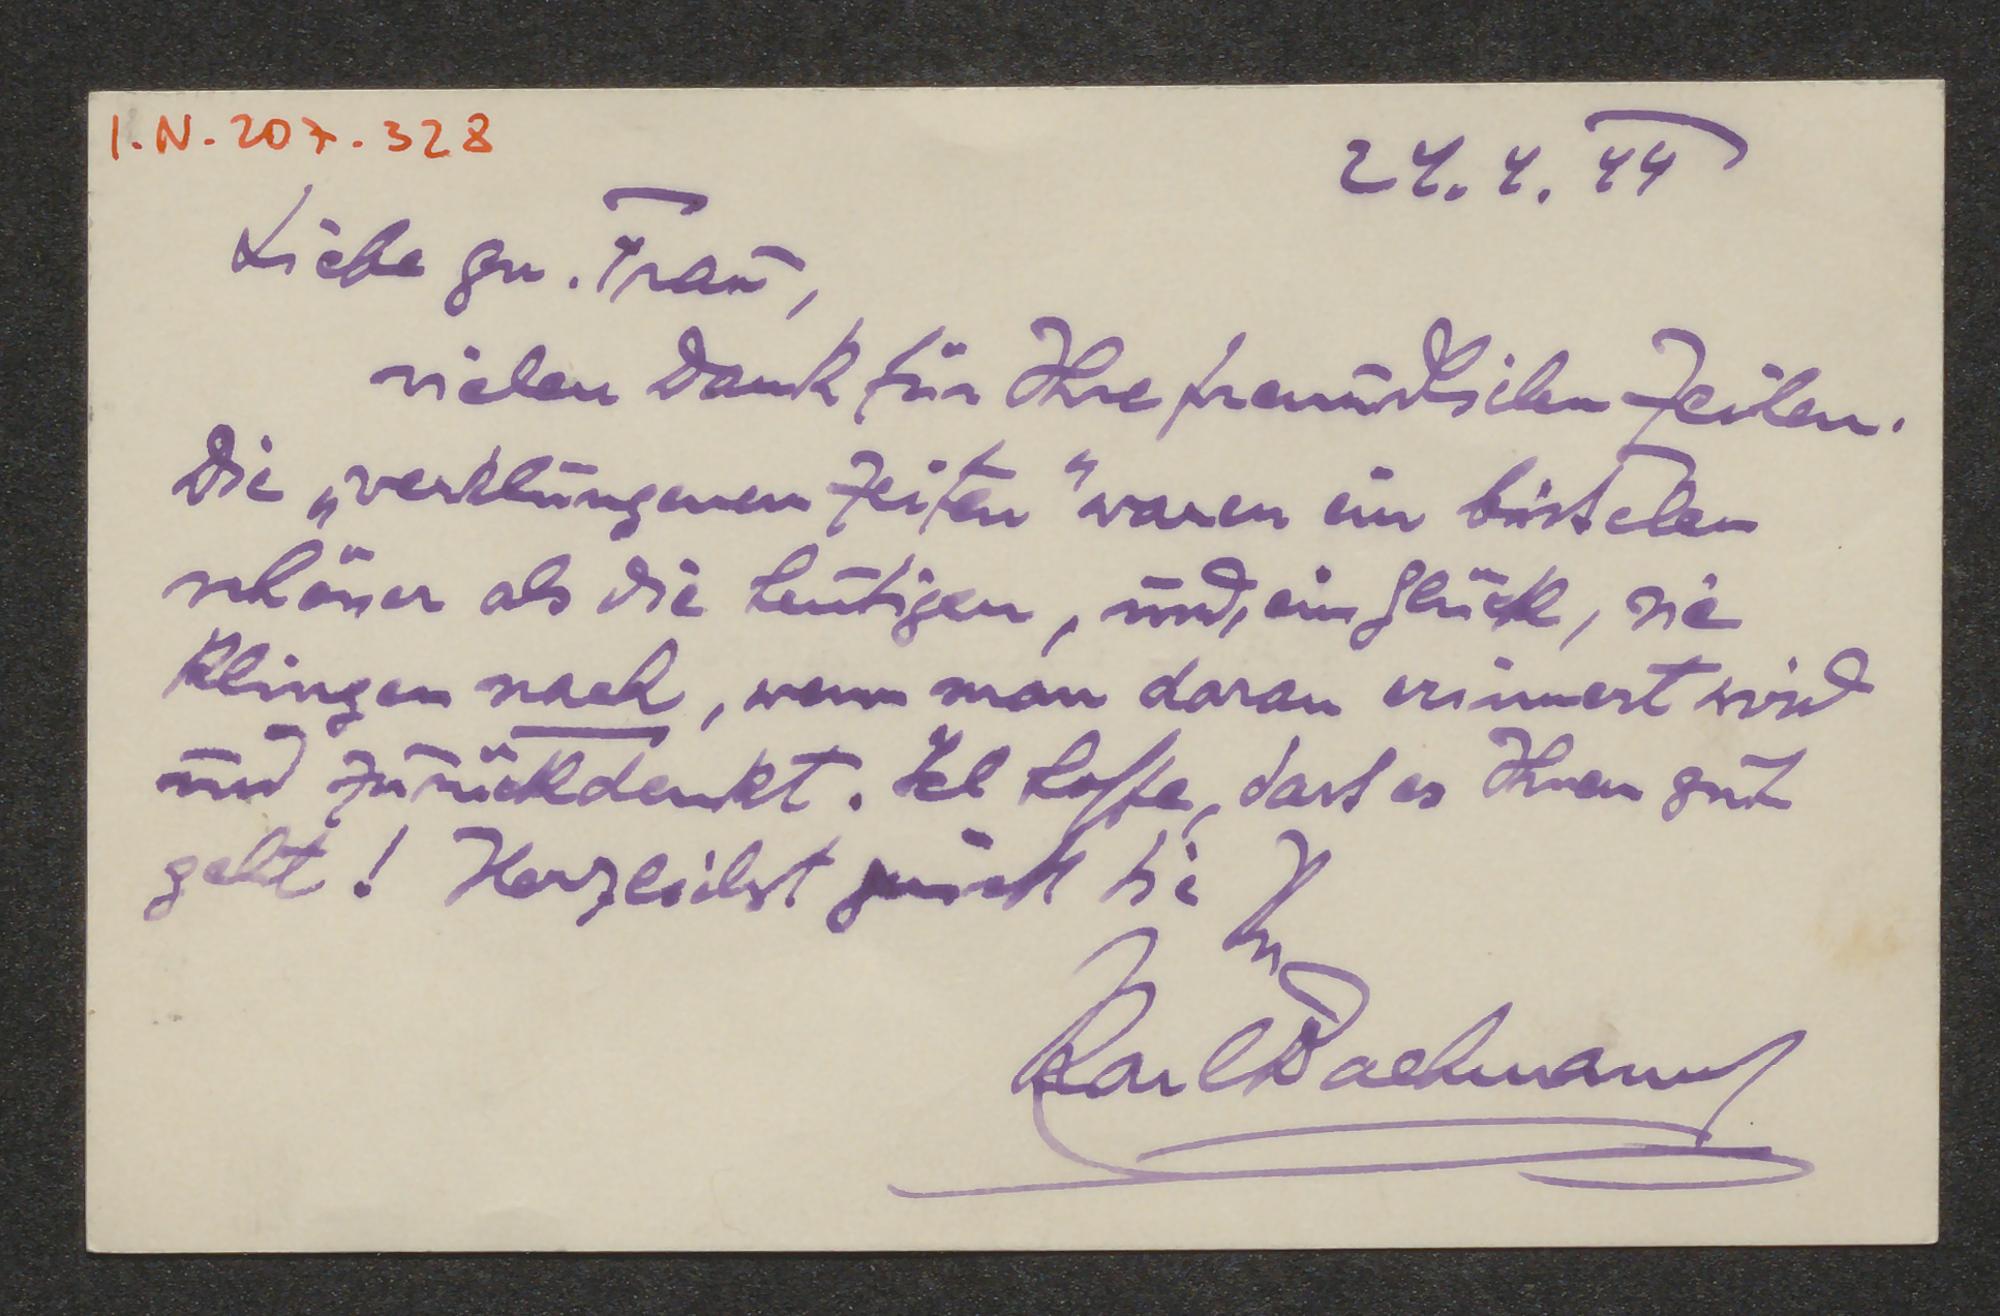 I.N. 207.328
24. 4. 44
Liebe gn. Frau,
vielen Dank für Ihre freundlichen Zeilen.
Die „verklungenen Zeiten" waren ein bisschen
schöner als die heutigen, und, ein Glück, sie
klingen nach, wenn man daran erinnert wird
und zurückdenkt. Ich hoffe, dass es Ihnen gut
geht! Herzlichst grüsst Sie
Ihr
Karl Bachmann